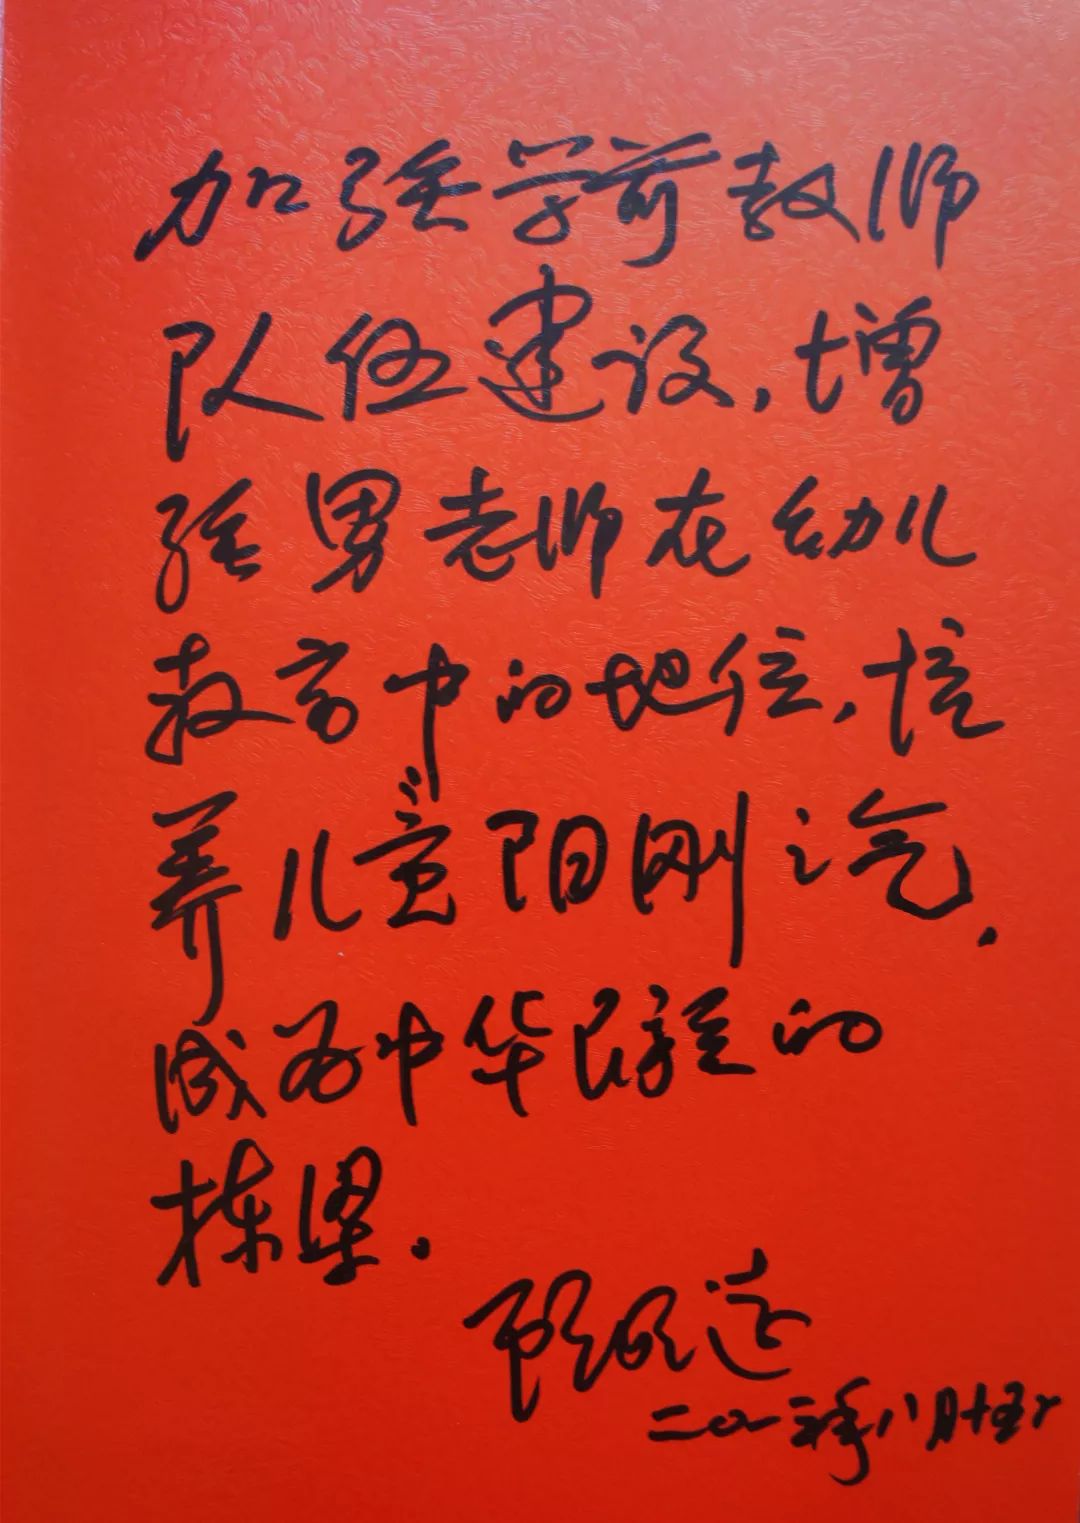 加强学前教师
队伍建设,增
强男老师在幼儿
教育中的地位,培
养儿童阳刚之气,
成为中华民族的
栋梁.
顾明远
八月十五